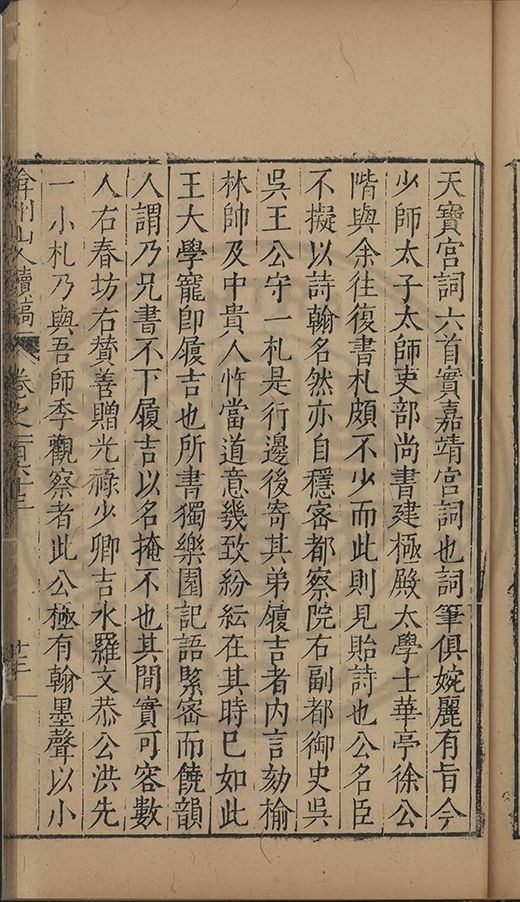 天寶宮詞六首實嘉靖宮詞也詞筆俱婉麗有旨今
少師太子太師吏部尚書建極殿太學士華亭徐公
階與余往復書札頗不少而此則見貽詩也公名臣
不擬以詩翰名然亦自穩密都察院右副都御史吳
吳王公守一札是行邊後寄其弟履吉者内言劾榆
林帥及中貴人忤當道意幾致紛紜在其時巳如此
王大學寵卽履吉也所書獨樂園記語緊密而饒韻
人謂乃兄書不下履吉以名掩不也其間實可容數
人右春坊右贊善贈光祿少卿吉水羅文恭公洪先
一小札乃與吾師季觀察者此公極有翰墨聲以小
弇州山人續稿 卷之一百六十三 廿二